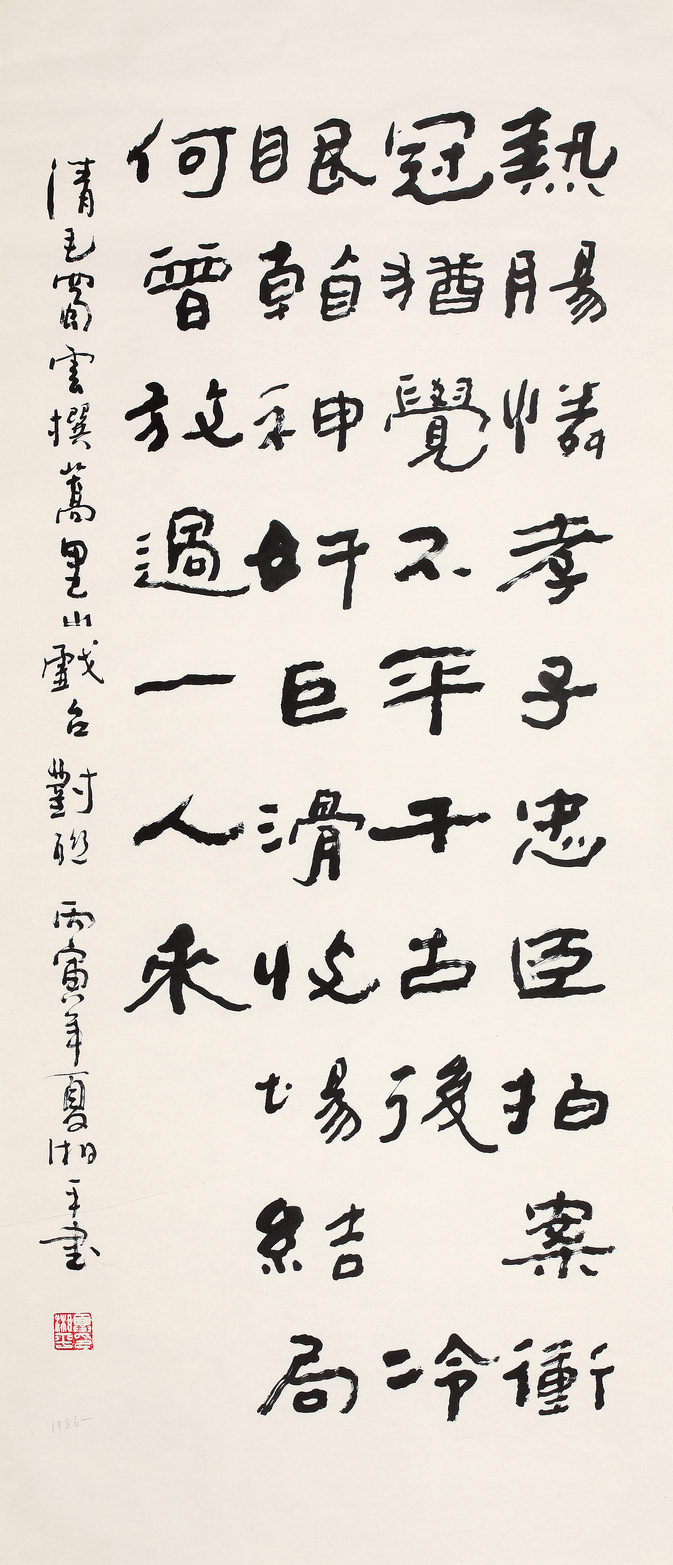 熱腸憐孝子忠臣拍案衝
冠猶覺不平千古後冷
眼靜神奸巨滑收場結局
何曾放過一人來
清毛蜀雲撰蒿里山戲台對聯 丙寅年夏湘平書
1986